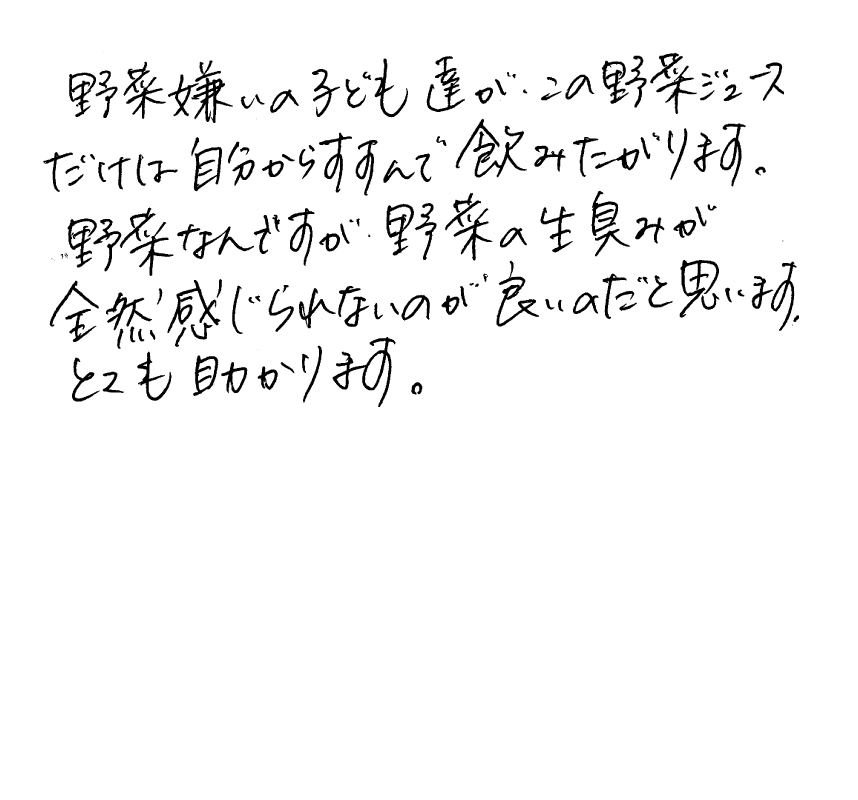 野菜嫌いの子ども達が、この野菜ジュース
だけは自分からすすんで飲みたがります。
野菜なんですが、野菜の生臭みが
全然感じられないのが良いのだと思います。
とても助かります。